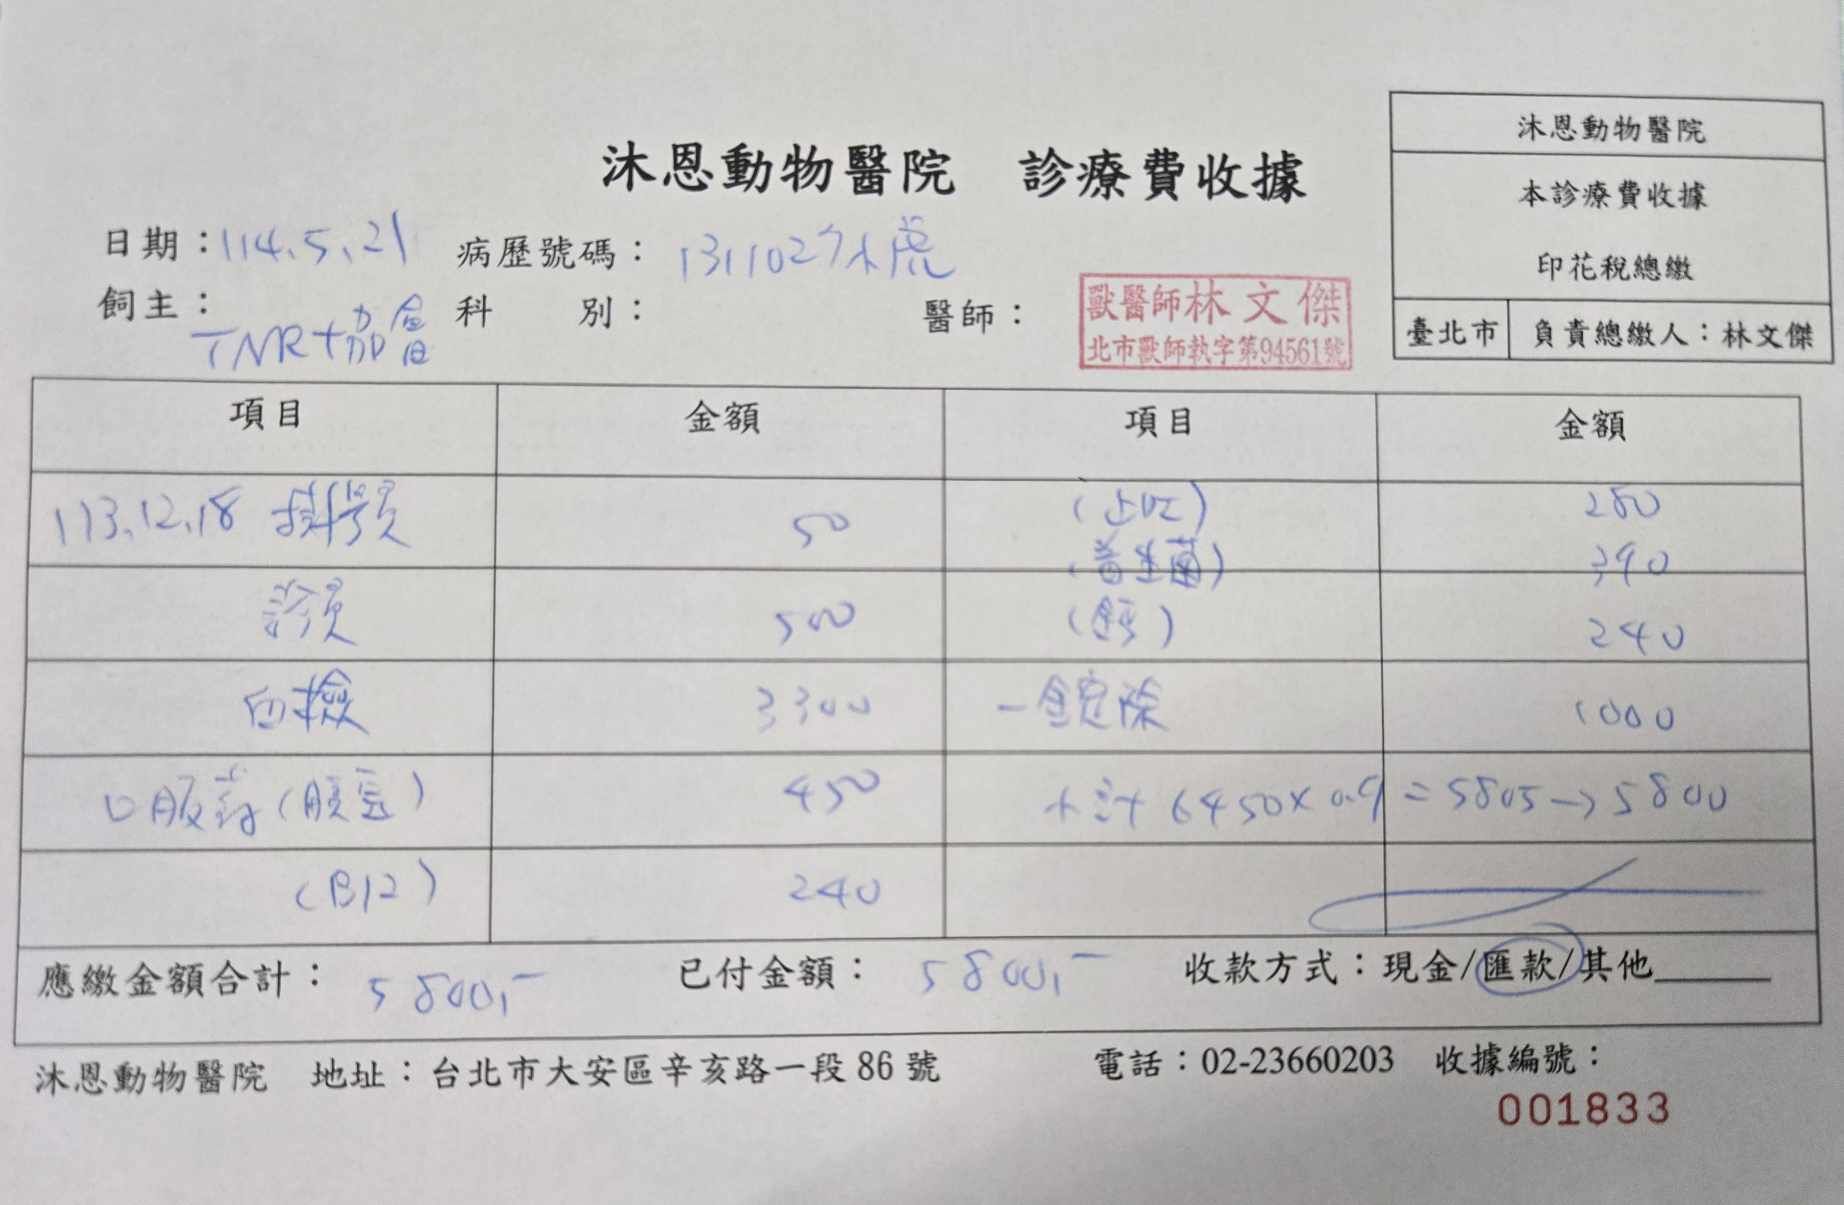 沐恩動物醫院
本診療費收據
印花稅總繳
臺北市 負責總繳人：林文傑
沐恩動物醫院 診療費收據
日期：114.5.21 病歷號碼：1311027小虎
飼主：TNR+加 科 別： 醫師：
獸醫師林文傑
北市獸師執字第94561號
項目 金額 項目 金額
113.12.18 掛號 50 (止吐) 280
(益生菌) 390
診費 500 240
血檢 3300 一錠除 1000
口服藥 450 小計 6450×0.9=5805→5800
(B12) 240
應繳金額合計：5800,- 已付金額：5800,- 收款方式：現金/匯款/其他
沐恩動物醫院 地址：台北市大安區辛亥路一段86號 電話：02-23660203 收據編號：
001833